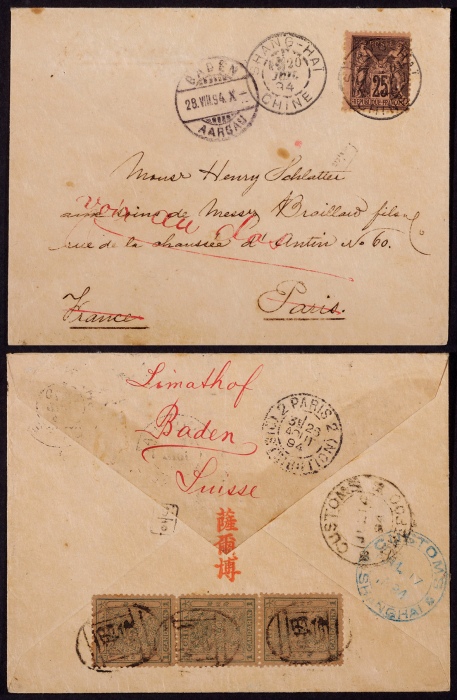 BADEN
28.VIII.94.X
AARGAU
SHANG-HAI
20
JUIL
94
CHINE
25
REPUBLIQUE FRANCAISE
Monsr Henry Schlatter
aux soins de Messrs Broillard fils
rue de la chaussée d'Antin No 60.
voir au dos
France
Paris.
Limathof
Baden
Suisse
2 PARIS 2
26
AOUT
94
DISTRIBUTION
薩爾博
CUSTOMS
CUSTOMS
JUL 17
94
SHANGHAI